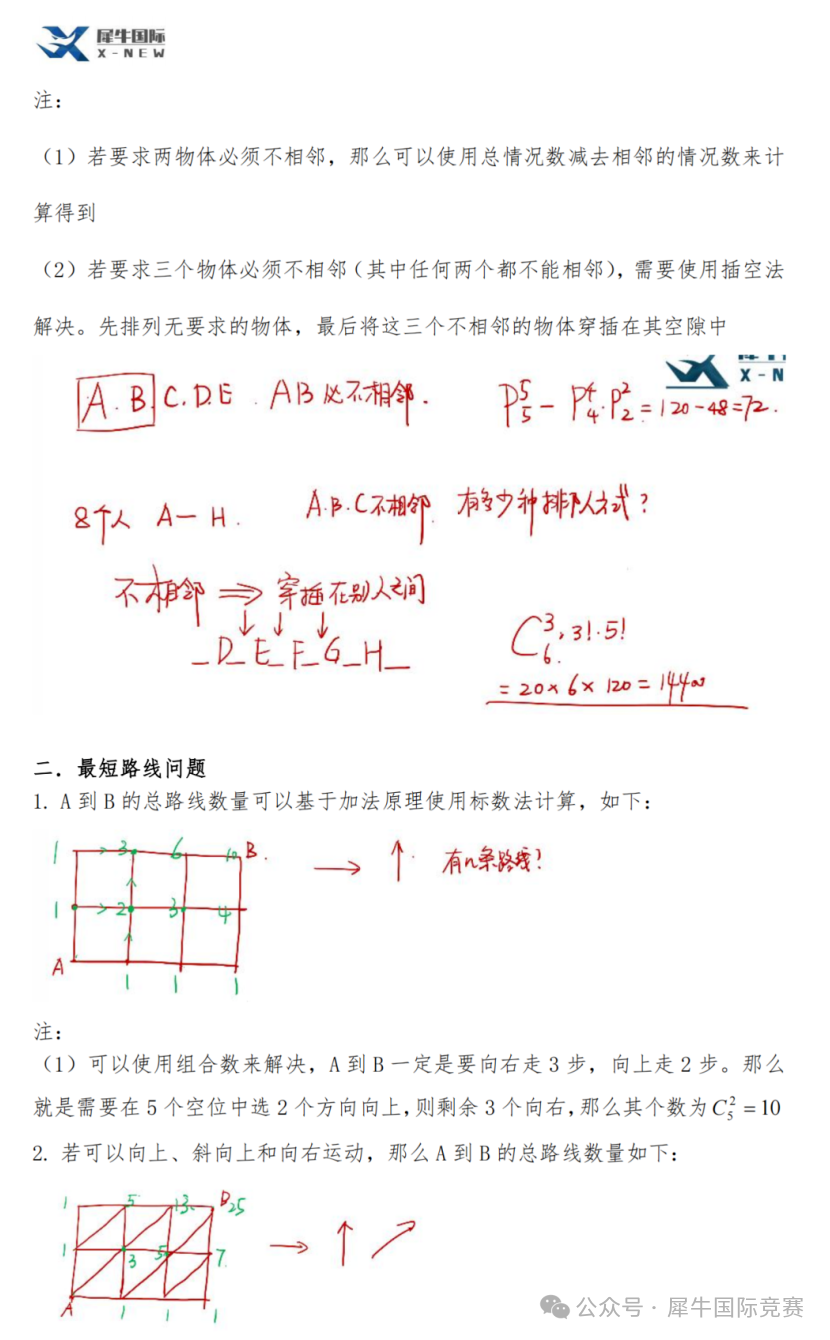 犀牛国际
X-NEW
注：
（1）若要求两物体必须不相邻，那么可以使用总情况数减去相邻的情况数来计
算得到
（2）若要求三个物体必须不相邻（其中任何两个都不能相邻），需要使用插空法
解决。先排列无要求的物体，最后将这三个不相邻的物体穿插在其空隙中
X-N
A.B.C.D.E. AB必不相邻. P₅⁵-P₄⁴·P₂²=120-48=72.
8个人 A-H. A.B.C不相邻. 有多少种排队方式?
不相邻 ⇒ 穿插在别人之间
_D_E_F_G_H_
C₆³·3!·5!
=20×6×120=14400
二．最短路线问题
1. A到B的总路线数量可以基于加法原理使用标数法计算，如下：
1 3 6 10 B. → ↑. 有n条路线?
1 2 3 4
A
1 1 1
注：
（1）可以使用组合数来解决，A到B一定是要向右走3步，向上走2步。那么
就是需要在5个空位中选2个方向向上,则剩余3个向右,那么其个数为C₅²=10
2. 若可以向上、斜向上和向右运动，那么A到B的总路线数量如下：
1 5 13 B 25
1 3 5 7 → ↑ ↗
A 1 1 1
公众号·犀牛国际竞赛